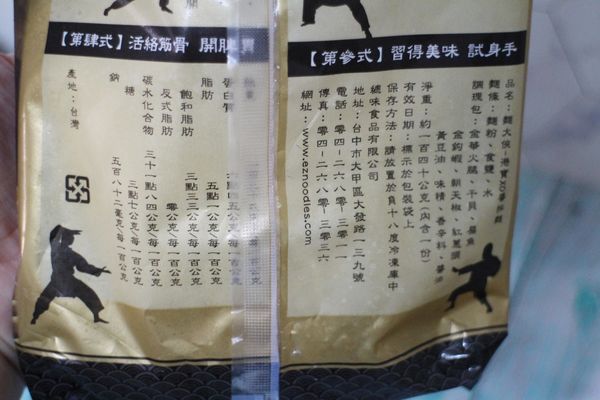 【第參式】習得美味 試身手
品名：麵大俠-港賣XO醬拌麵
麵條：麵粉、食鹽、水
調理包：金華火腿、干貝、扁魚
金鉤蝦、朝天椒、紅蔥頭
黃豆油、味精、香辛料、醬油
淨重：約一百四十公克(內含一份)
有效日期：標示於包裝袋上
保存方法：請放置於負十八度冷凍庫中
總味食品有限公司
地址：台中市大甲區大發路一三九號
電話：零四-二六八零-三零一一
傳真：零四-二六八零-三零三六
網址：www.eznoodles.com
【第肆式】活絡筋骨 開脾胃
蛋白質
脂肪
飽和脂肪
反式脂肪 零公克/每一百公克
碳水化合物 三十一點八四公克/每一百公克
糖 三點七公克/每一百公克
鈉 五百八十二毫克/每一百公克
產地：台灣